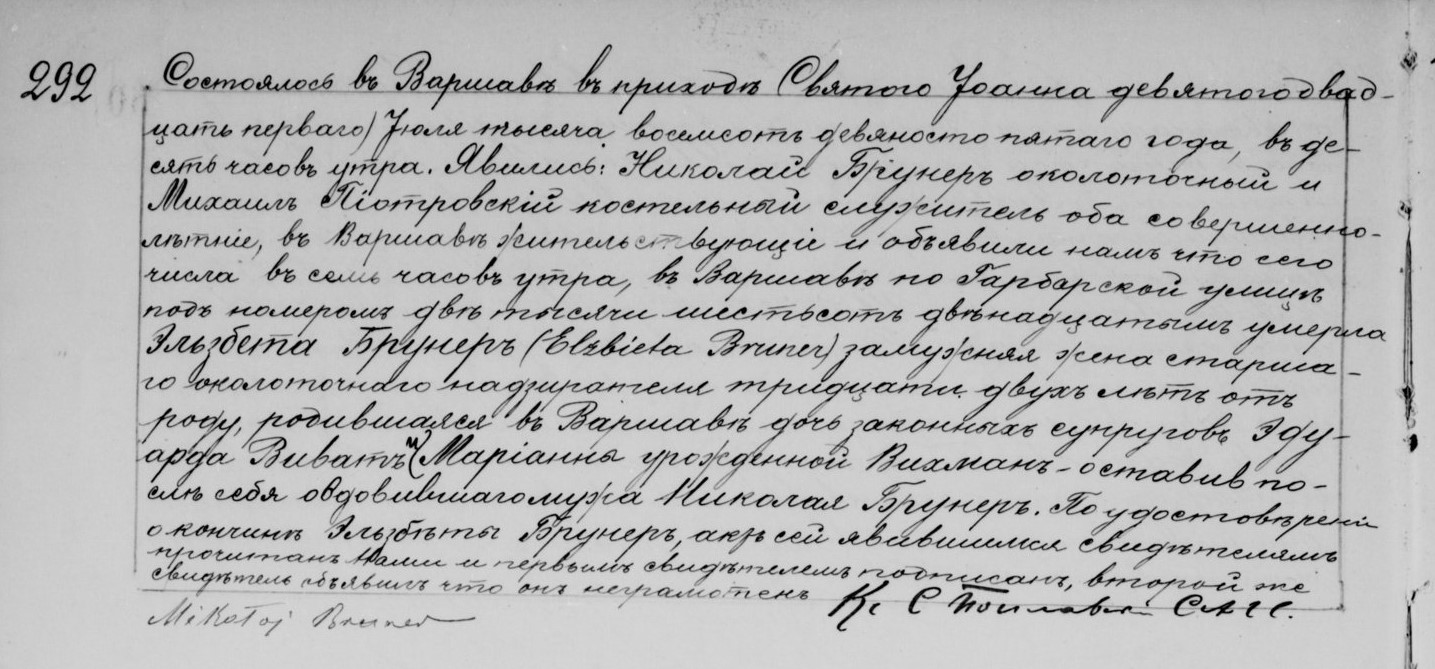 292
Состоялось въ Варшавѣ въ приходѣ Святого Іоанна девятого двад-
цать перваго) Іюля тысяча восемсотъ девяносто пятаго года, въ де-
сять часовъ утра. Явились: Николай Брунеръ околоточный и
Михаилъ Піотровскій костельный служитель оба совершенно-
лѣтніе, въ Варшавѣ жительствующіе и объявили намъ что сего
числа въ семь часовъ утра, въ Варшавѣ по Гарбарской улицѣ
подъ номеромъ двѣ тысячи шестьсотъ двѣнадцатымъ умерла
Эльзбета Брунеръ (Elżbieta Bruner) замужняя жена старша-
го околоточнаго надзирателя тридцати двухъ лѣтъ отъ
роду, родившаяся въ Варшавѣ дочь законныхъ супруговъ Эду-
арда Виватъ и Маріанны урожденной Вихманъ - оставив по-
слѣ себя овдовившаго мужа Николая Брунеръ. По удостовѣреніи
о кончинѣ Эльзбѣты Брунеръ, актъ сей явившимся свидѣтелямъ
прочитанъ Нами и первымъ свидѣтелемъ подписанъ, второй же
свидѣтель объявилъ что онъ неграмотенъ
Mikołaj Bruner Кс С